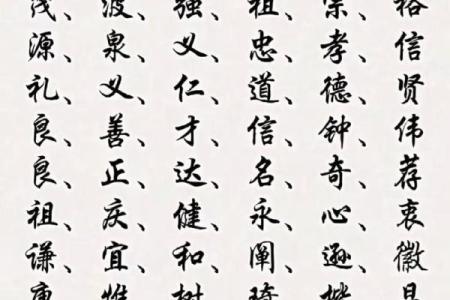 茂、波、强、祖、宗、裕
源、泉、义、忠、孝、信
礼、义、仁、道、德、贤
良、善、才、信、钟、伟
良、正、达、名、奇、荐
祖、庆、健、永、心、衷
谦、宜、和、阐、逊、徽
康、惟、树、琦、楷、昆